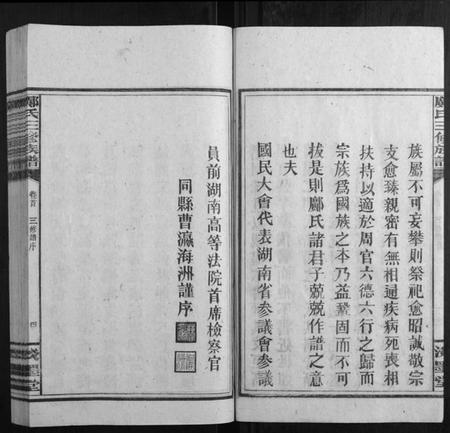 族屬不可妄攀則祭祀愈昭誠敬宗
支愈臻親密有無相通疾病死喪相
扶持以適於周官六德六行之歸而
宗族爲國族之本乃益鞏固而不可
拔是則鄺氏諸君子兢兢作譜之意
也夫
國民大會代表湖南省參議會參議
員前湖南高等法院首席檢察官
同縣曹瀛海洲謹序
鄺氏三修族譜
卷首
三修譜序
四